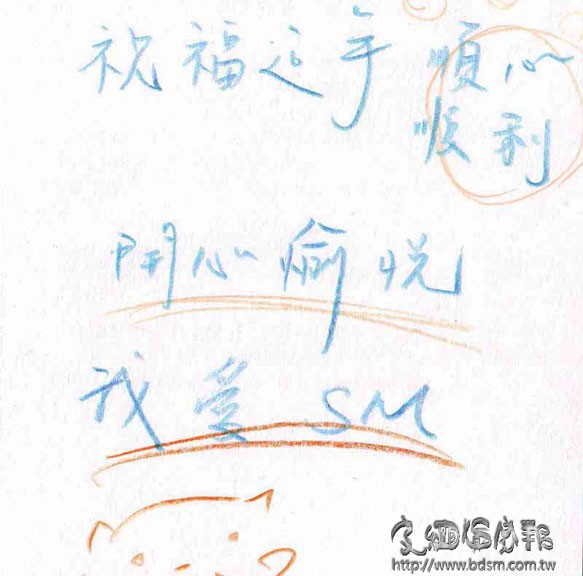 祝福這年 順心
順利
開心愉悅
我愛 SM
皮繩愉虐邦
http://www.bdsm.com.tw